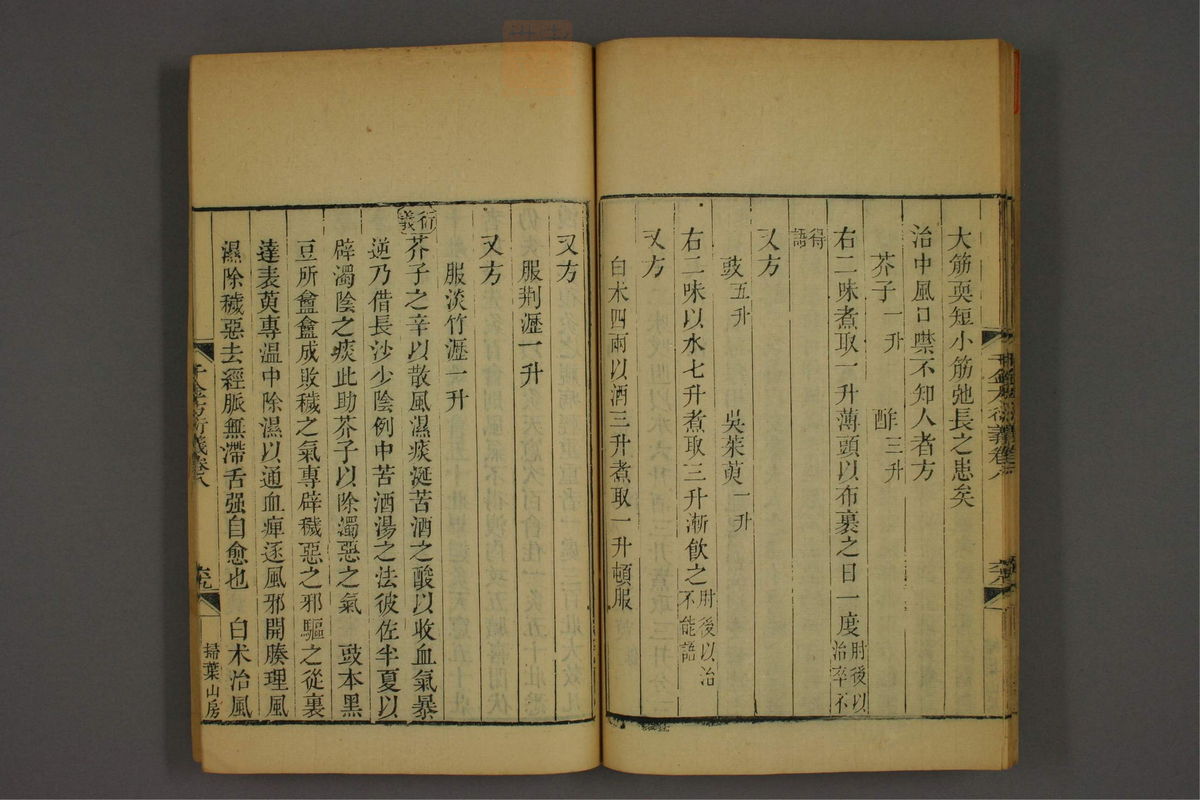 大筋耎短小筋弛長之患矣
治中風口噤不知人者方
芥子一升 酢三升
右二味煮取一升薄頭以布裹之日一度肘後以治卒不
得語
又方
豉五升 吳茱萸一升
右二味以水七升煮取三升漸飲之肘後以治不能語
又方
白术四兩以酒三升煮取一升頓服
又方
服荆瀝一升
又方
服淡竹瀝一升
衍義芥子之辛以散風濕痰涎苦酒之酸以收血氣暴
逆乃借長沙少陰例中苦酒湯之法彼佐半夏以
辟濁陰之痰此助芥子以除濁惡之氣 豉本黑
豆所盦盦成敗穢之氣專辟穢惡之邪驅之從裏
達表萸專溫中除濕以通血痺逐風邪開腠理風
濕除穢惡去經脈無滯舌强自愈也 白术治風
千金方衍義卷八
掃葉山房